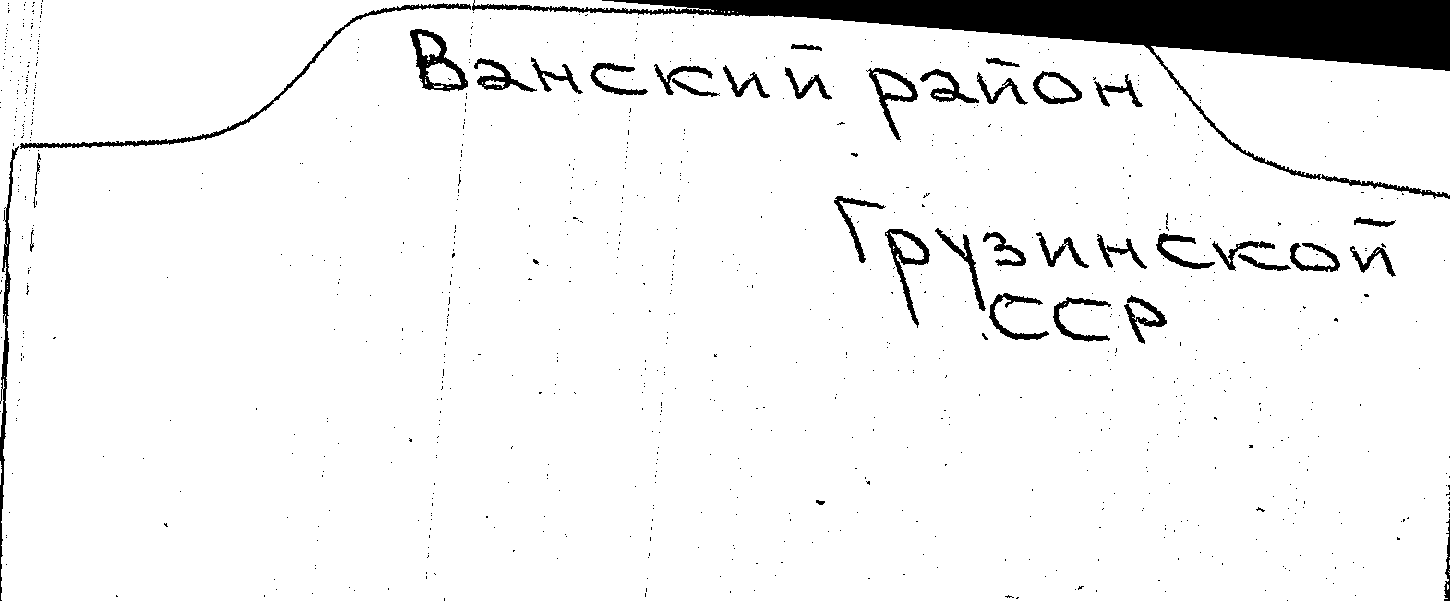 Ванский район
Грузинской
ССР